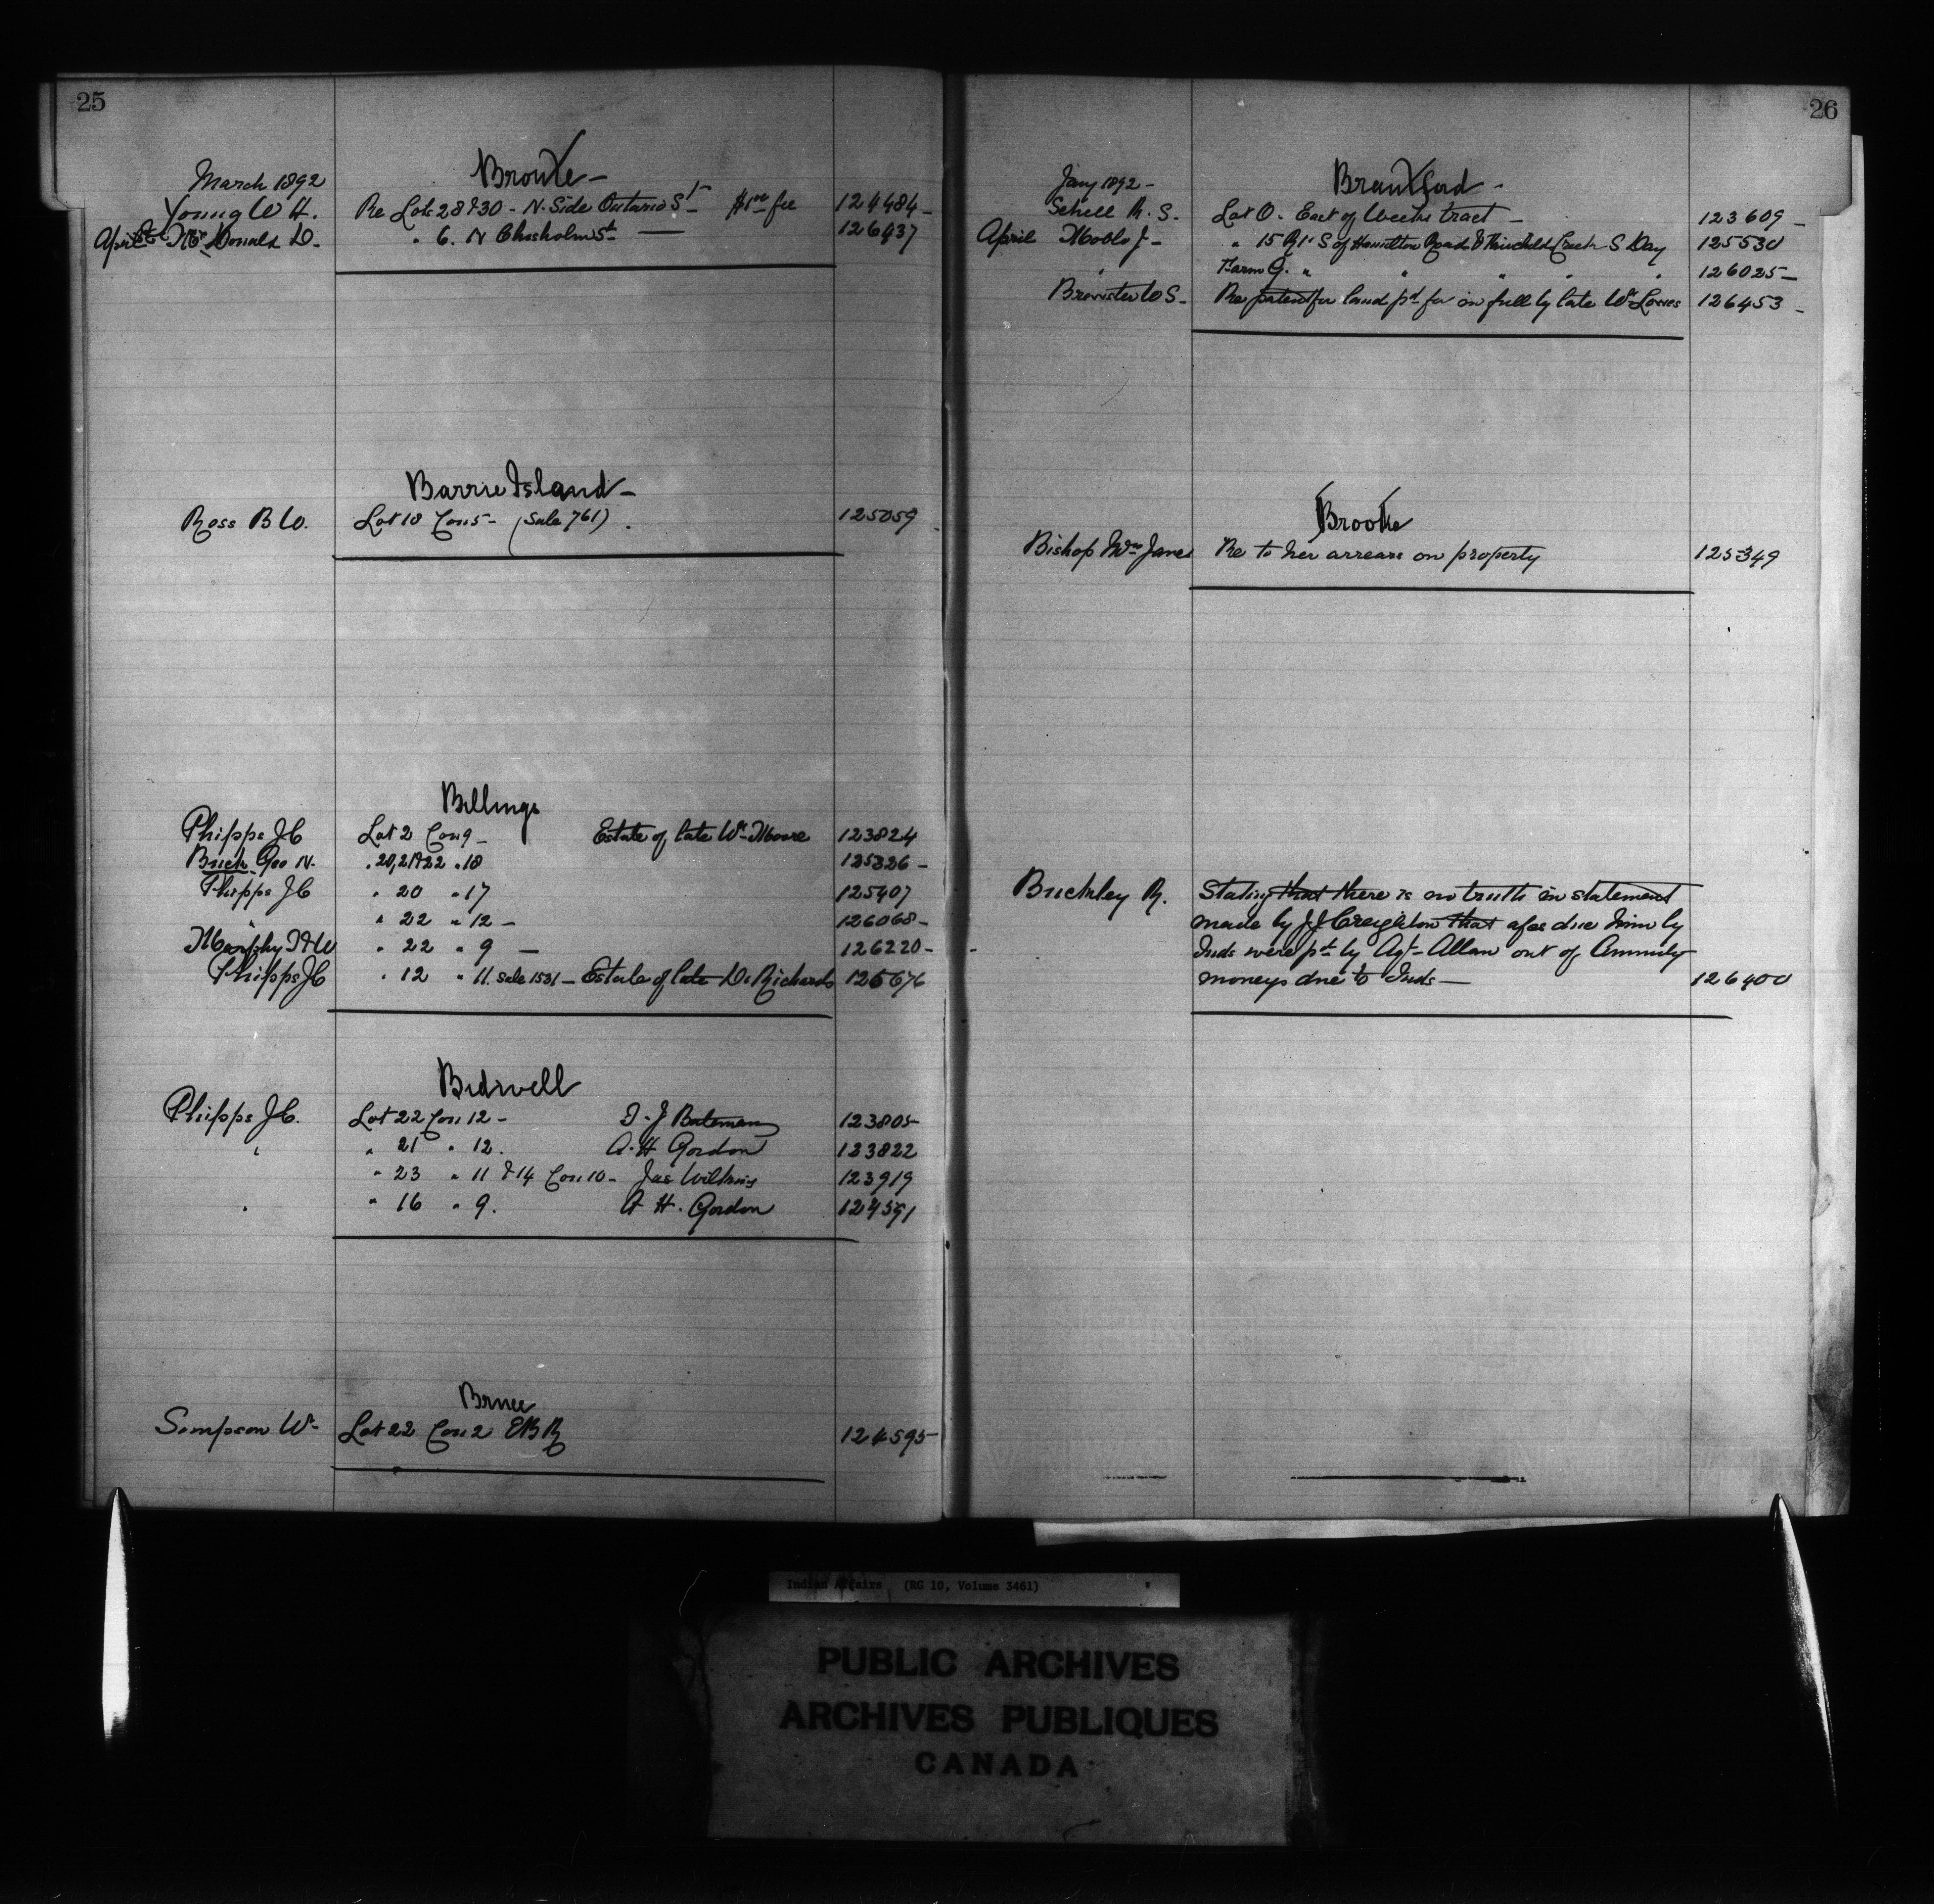 25
Bronte -
March 1892
Young W H. Re Lots 28 & 30 - N. Side Ontario St - $1.00 fee 124484 -
April McDonald D. " 6. N Chisholm St - 126437
Barrie Island -
Ross B W. Lot 18 Con 5 - (Sale 761). 125059
Billings
Phipps J C Lot 2 Con 9 - Estate of late Wm Moore 123824
Buck Geo N. " 20, 21 & 22 " 18 125326 -
Phipps J C " 20 " 17 125407
" " 22 " 12 - 126068 -
Murphy T & W " 22 " 9 - 126220 -
Phipps J C " 12 " 11. Sale 1531 - Estate of late D. Richards 126676
Bidwell
Phipps J C. Lot 22 Con 12 - T. J Bateman 123805
" " 21 " 12. A. H Gordon 123822
" 23 " 11 & 14 Con 10 - Jas Wilkins 123919
" " 16 " 9. A H. Gordon 124591
Bruce
Simpson Wm Lot 22 Con 2 EBR 124595
26
Brantford -
Jany 1892 -
Schell R. S. Lot O. East of Weeks tract - 123609 -
April Moblo J - " 15 R 1 S of Hamilton Road & Fairchild Creek S Day 125530
" Farm G. " " " " " 126025 -
Brewster W S - Re patent for land pd for in full by late Wm Lowes 126453 -
Brooke
Bishop Mrs Jane Re to her arrears on property 125349
Buckley R. Stating that there is no truth in statement
made by J J Creighton that a/cs due him by
Inds were pd by Agt - Allan out of Annuity
moneys due to Inds - 126400
Indian Affairs (RG 10, Volume 3461)
PUBLIC ARCHIVES
ARCHIVES PUBLIQUES
CANADA